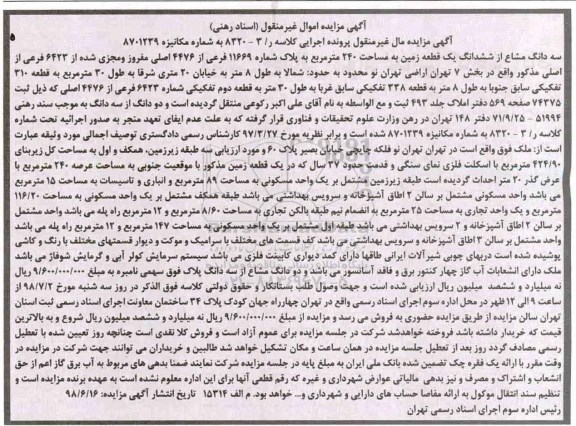 آگهی مزایده اموال غیرمنقول (اسناد رهنی)
آگهی مزایده مال غیرمنقول پرونده اجرایی کلاسه ر/ ۳ - ۸۳۲۰ به شماره مکانیزه ۸۷۰۱۲۳۹
۵
سه دانگ مشاع از ششدانگ یک قطعه زمین به مساحت ۲۴۰ مترمربع به پلاک شماره ۱۱۶۶۹ فرعی از ۴۴۷۶ اصلی مفروز ومجزی شده از ۶۴۲۳ فرعی از
اصلی مذکور واقع در بخش ۷ تهران اراضی تهران نو محدود به حدود: شمالا به طول ۸ متر به خیابان ۲۰ متری شرقا به طول ۳۰ مترمربع به قطعه ۳۱۰
تفکیکی سابق جنوبا به طول ۸ متر به قطعه ۳۲۸ تفکیکی سابق غربا به طول ۳۰ متر به قطعه دوم تفکیکی شماره ۶۴۲۳ فرعی از ۴۴۷۶ اصلی که ذیل ثبت
۷۴۳۷۵ صفحه ۵۶۹ دفتر املاک جلد ۴۹۳ ثبت و مع الواسطه به نام آقای علی اکبر رکوعی منتقل گردیده است و دو دانگ از سه دانگ به موجب سند رهنی
۵۱۹۹۴ - ۷۱/۹/۲۵ دفتر ۱۴۸ تهران در رهن وزارت علوم تحقیقات و فناوری قرار گرفته که به علت عدم ایفای تعهد منجر به صدور اجرائیه تحت شماره
کلاسه ر/ ۳ - ۸۳۲۰ به شماره مکانیزه ۸۷۰۱۲۳۹ شده است و برابر نظریه مورخ ۹۷/۳/۲۷ کارشناس رسمی دادگستری توصیف اجمالی مورد وثیقه عبارت
است از: ملک فوق واقع است در تهران تهران نو فلکه چایچی خیابان بصیر پلاک ۶۰ و مورد ارزیابی سه طبقه زیرزمین، همکف و اول به مساحت کل زیربنای
۴۲۴/۹۰ مترمربع با اسکلت فلزی نمای سنگی و قدمت حدود ۳۷ سال که در یک قطعه زمین مذکور با موقعیت جنوبی به مساحت عرصه ۲۴۰ مترمربع با
عرض گذر ۲۰ متر احداث گردیده است طبقه زیرزمین مشتمل بر یک واحد مسکونی به مساحت ۸۹ مترمربع و انباری و تاسیسات به مساحت ۱۵ مترمربع
می باشد واحد مسکونی مشتمل بر سالن ۲ اطاق آشپزخانه و سرویس بهداشتی می باشد طبقه همکف مشتمل بر یک واحد مسکونی به مساحت ۱۱۶/۲۰
مترمربع و یک واحد تجاری به مساحت ۲۵ مترمربع به انضمام نیم طبقه بالکن تجاری به مساحت ۸/۶۰ مترمربع و ۱۲ مترمربع راه پله می باشد واحد مشتمل
بر سالن ۲ اطاق آشپزخانه و ۲ سرویس بهداشتی می باشد طبقه اول مشتمل بر یک واحد مسکونی به مساحت ۱۴۷ مترمربع و ۱۲ مترمربع راه پله می باشد
واحد مشتمل بر سالن ۳ اطاق آشپزخانه و سرویس بهداشتی می باشد کف قسمت های مختلف با سرامیک و موکت و دیوار قسمتهای مختلف با رنگ و کاشی
پوشیده شده است دربهای چوبی شیرآلات ایرانی طاقها دارای کمد دیواری کابینت فلزی می باشد سیستم سرمایش کولر آبی و گرمایش شوفاژ می باشد
ملک دارای انشعابات آب گاز چهار کنتور برق و فاقد آسانسور می باشد و دو دانگ مشاع از سه دانگ پلاک فوق سهمی نامبرده به مبلغ ۹/۶۰۰/۰۰۰/۰۰۰ ریال
نه میلیارد و ششصد میلیون ریال ارزیابی شده است و جهت وصول طلب بستانکار و حقوق دولتی کلاسه فوق الذکر در روز سه شنبه مورخ ۹۸/۷/۲ از
ساعت ۹ الی ۱۲ ظهر در محل اداره سوم اجرای اسناد رسمی واقع در تهران چهارراه جهان کودک پلاک ۳۴ ساختمان معاونت اجرای اسناد رسمی ثبت استان
تهران سالن مزایده از طریق مزایده حضوری به فروش می رسد و مزایده از مبلغ ۹/۶۰۰/۰۰۰/۰۰۰ ریال نه میلیارد و ششصد میلیون ریال شروع و به بالاترین
قیمت که خریدار داشته باشد فروخته خواهدشد شرکت در جلسه مزایده برای عموم آزاد است و فروش کلا نقدی است چنانچه روز تعیین شده با تعطیل
رسمی مصادف گردد روز بعد از تعطیل جلسه مزایده در همان ساعت و مکان تشکیل خواهد شد طالبین و خریداران می توانند جهت شرکت در مزایده در
وقت مقرر با ارائه یک فقره چک تضمین شده بانک ملی ایران به مبلغ پایه در جلسه مزایده شرکت نمایند ضمنا بدهی های مربوط به آب برق گاز اعم از حق
انشعاب و اشتراک و مصرف و نیز بدهی مالیاتی عوارض شهرداری و غیره که رقم قطعی آنها برای این اداره معلوم نشده است به عهده برنده مزایده است و
تنظیم سند انتقال موکول به ارائه مفاصا حساب های دارایی و شهرداری و... خواهد بود. م الف ۱۵۳۱۴ تاریخ انتشار آگهی مزایده: ۹۸/۶/۱۶
رئیس اداره سوم اجرای اسناد رسمی تهران